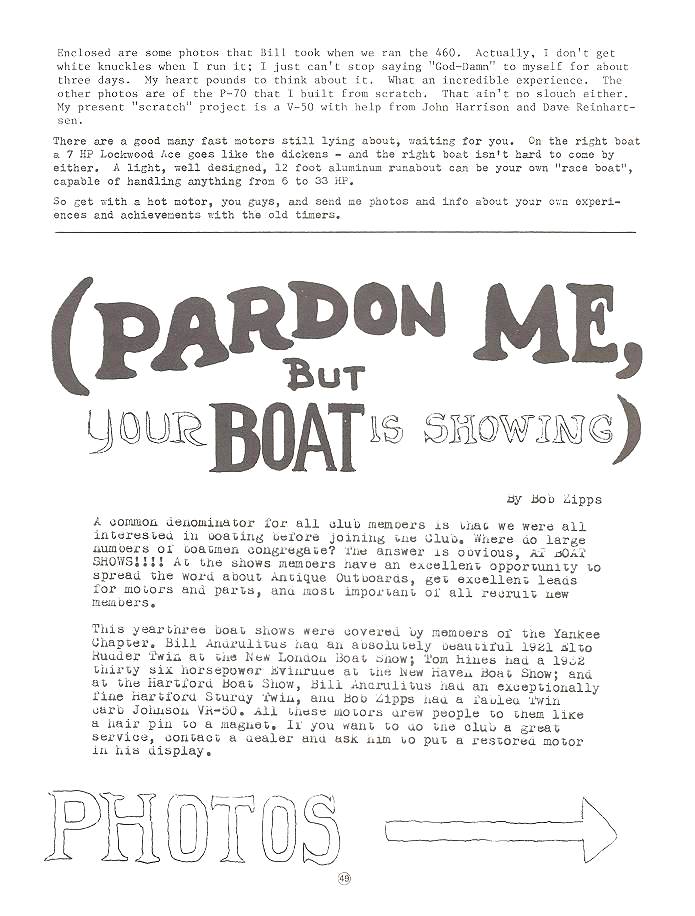 Enclosed are some photos that Bill took when we ran the 460.  Actually, I don't get
white knuckles when I run it; I just can't stop saying "God-Damn" to myself for about
three days.  My heart pounds to think about it.  What an incredible experience.  The
other photos are of the P-70 that I built from scratch.  That ain't no slouch either.
My present "scratch" project is a V-50 with help from John Harrison and Dave Reinhart-
sen.
There are a good many fast motors still lying about, waiting for you.  On the right boat
a 7 HP Lockwood Ace goes like the dickens - and the right boat isn't hard to come by
either.  A light, well designed, 12 foot aluminum runabout can be your own "race boat",
capable of handling anything from 6 to 33 HP.
So get with a hot motor, you guys, and send me photos and info about your own experi-
ences and achievements with the old timers.
(PARDON ME,
BUT
YOUR BOAT IS SHOWING)
By Bob Zipps
A common denominator for all club members is that we were all
interested in boating before joining the Club. Where do large
numbers of boatmen congregate? The answer is obvious, AT BOAT
SHOWS!!!! At the shows members have an excellent opportunity to
spread the word about Antique Outboards, get excellent leads
for motors and parts, and most important of all recruit new
members.
This yearthree boat shows were covered by members of the Yankee
Chapter. Bill Andrulitus had an absolutely beautiful 1921 Elto
Rudder Twin at the New London Boat Show; Tom Hines had a 1932
thirty six horsepower Evinrude at the New Haven Boat Show; and
at the Hartford Boat Show, Bill Andrulitus had an exceptionally
fine Hartford Sturdy Twin, and Bob Zipps had a fabled Twin
carb Johnson VR-50. All these motors drew people to them like
a hair pin to a magnet. If you want to do the club a great
service, contact a dealer and ask him to put a restored motor
in his display.
PHOTOS
49